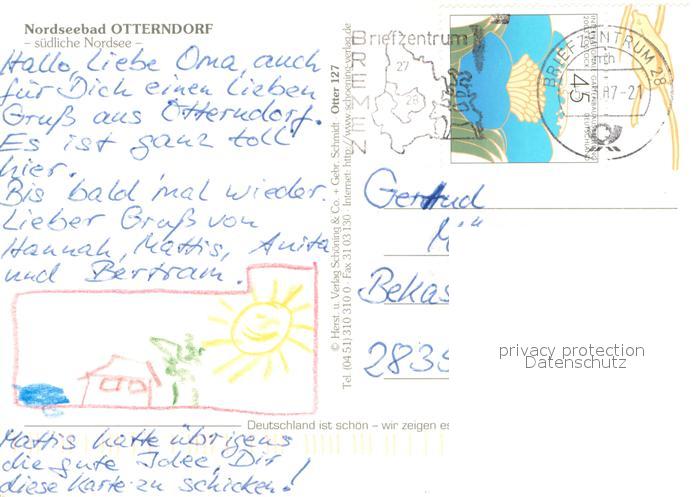 Nordseebad OTTERNDORF
– südliche Nordsee –
Hallo, Liebe Oma, auch
für Dich einen lieben
Gruß aus Otterndorf.
Es ist ganz toll
hier.
Bis bald mal wieder.
Lieber Gruß von
Hannah, Mattis, Anita
und Bertram.
Mattis hatte übrigens
die gute Idee, Dir
diese Karte zu schicken!
© Herst. u. Verlag Schöning & Co. + Gebr. Schmidt Otter 127
Tel. (04 51) 310 310 0 · Fax 31 03 130 · Internet: http://www.schoening-verlag.de
Deutschland ist schön – wir zeigen es
Briefzentrum
BREMEN
27
28
BRIEFZENTRUM 28
45
-21
Gertrud
Bekas
2835
privacy protection
Datenschutz